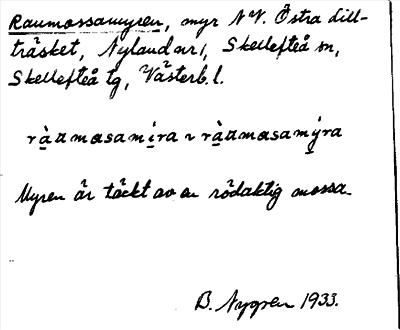 Raumossamyren, myr N.V. Östra Lill-
träsket, Nyland nr 1, Skellefteå sn,
Skellefteå tg, Västerb. l.
ràumasamira ~ ràumasamýra
Myren är täckt av en rödaktig mossa
B. Nygren 1933.